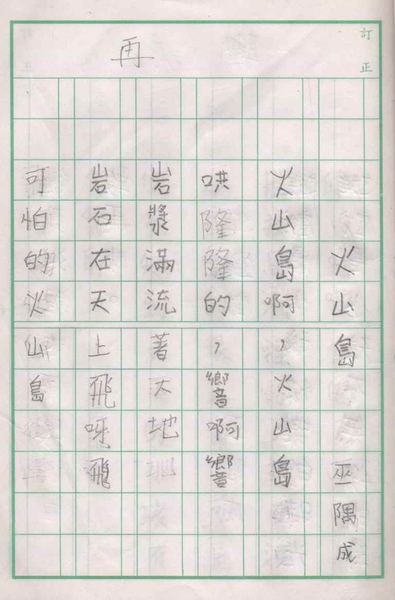 訂正
再
火山島 巫隅成
火山島啊，火山島
哄隆隆的，響啊響
岩漿滿流著大地
岩石在天上飛呀飛
可怕的火山島